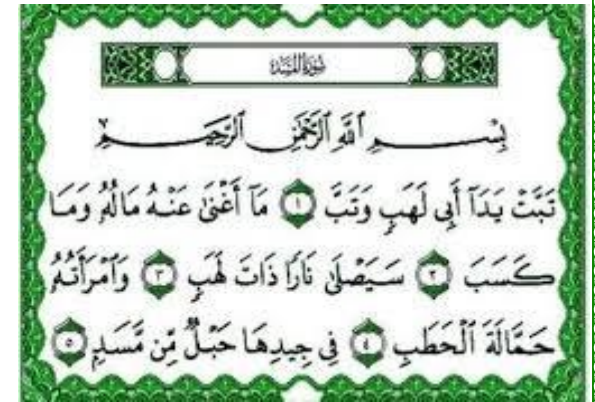 سُورَةُ المَسَد
بِسْمِ ٱللَّهِ ٱلرَّحْمَٰنِ ٱلرَّحِيمِ
تَبَّتْ يَدَآ أَبِى لَهَبٍ وَتَبَّ ١ مَآ أَغْنَىٰ عَنْهُ مَالُهُۥ وَمَا
كَسَبَ ٢ سَيَصْلَىٰ نَارًا ذَاتَ لَهَبٍ ٣ وَٱمْرَأَتُهُۥ
حَمَّالَةَ ٱلْحَطَبِ ٤ فِى جِيدِهَا حَبْلٌ مِّن مَّسَدٍۭ ٥